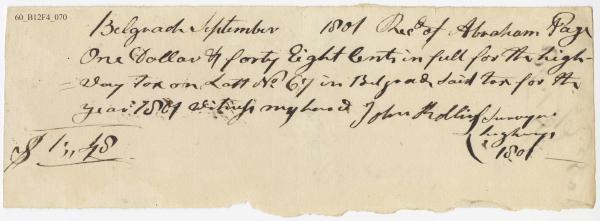 60_B12F4_070
Belgrade September 1801 Recd of Abraham Page
One Dollar & forty Eight Cents in full for the high-
=way tax on Lott No 67 in Belgrade said tax for the
year 1801 Witness my hand John Rollins Surveyor
highways
1801
$ 1,,48